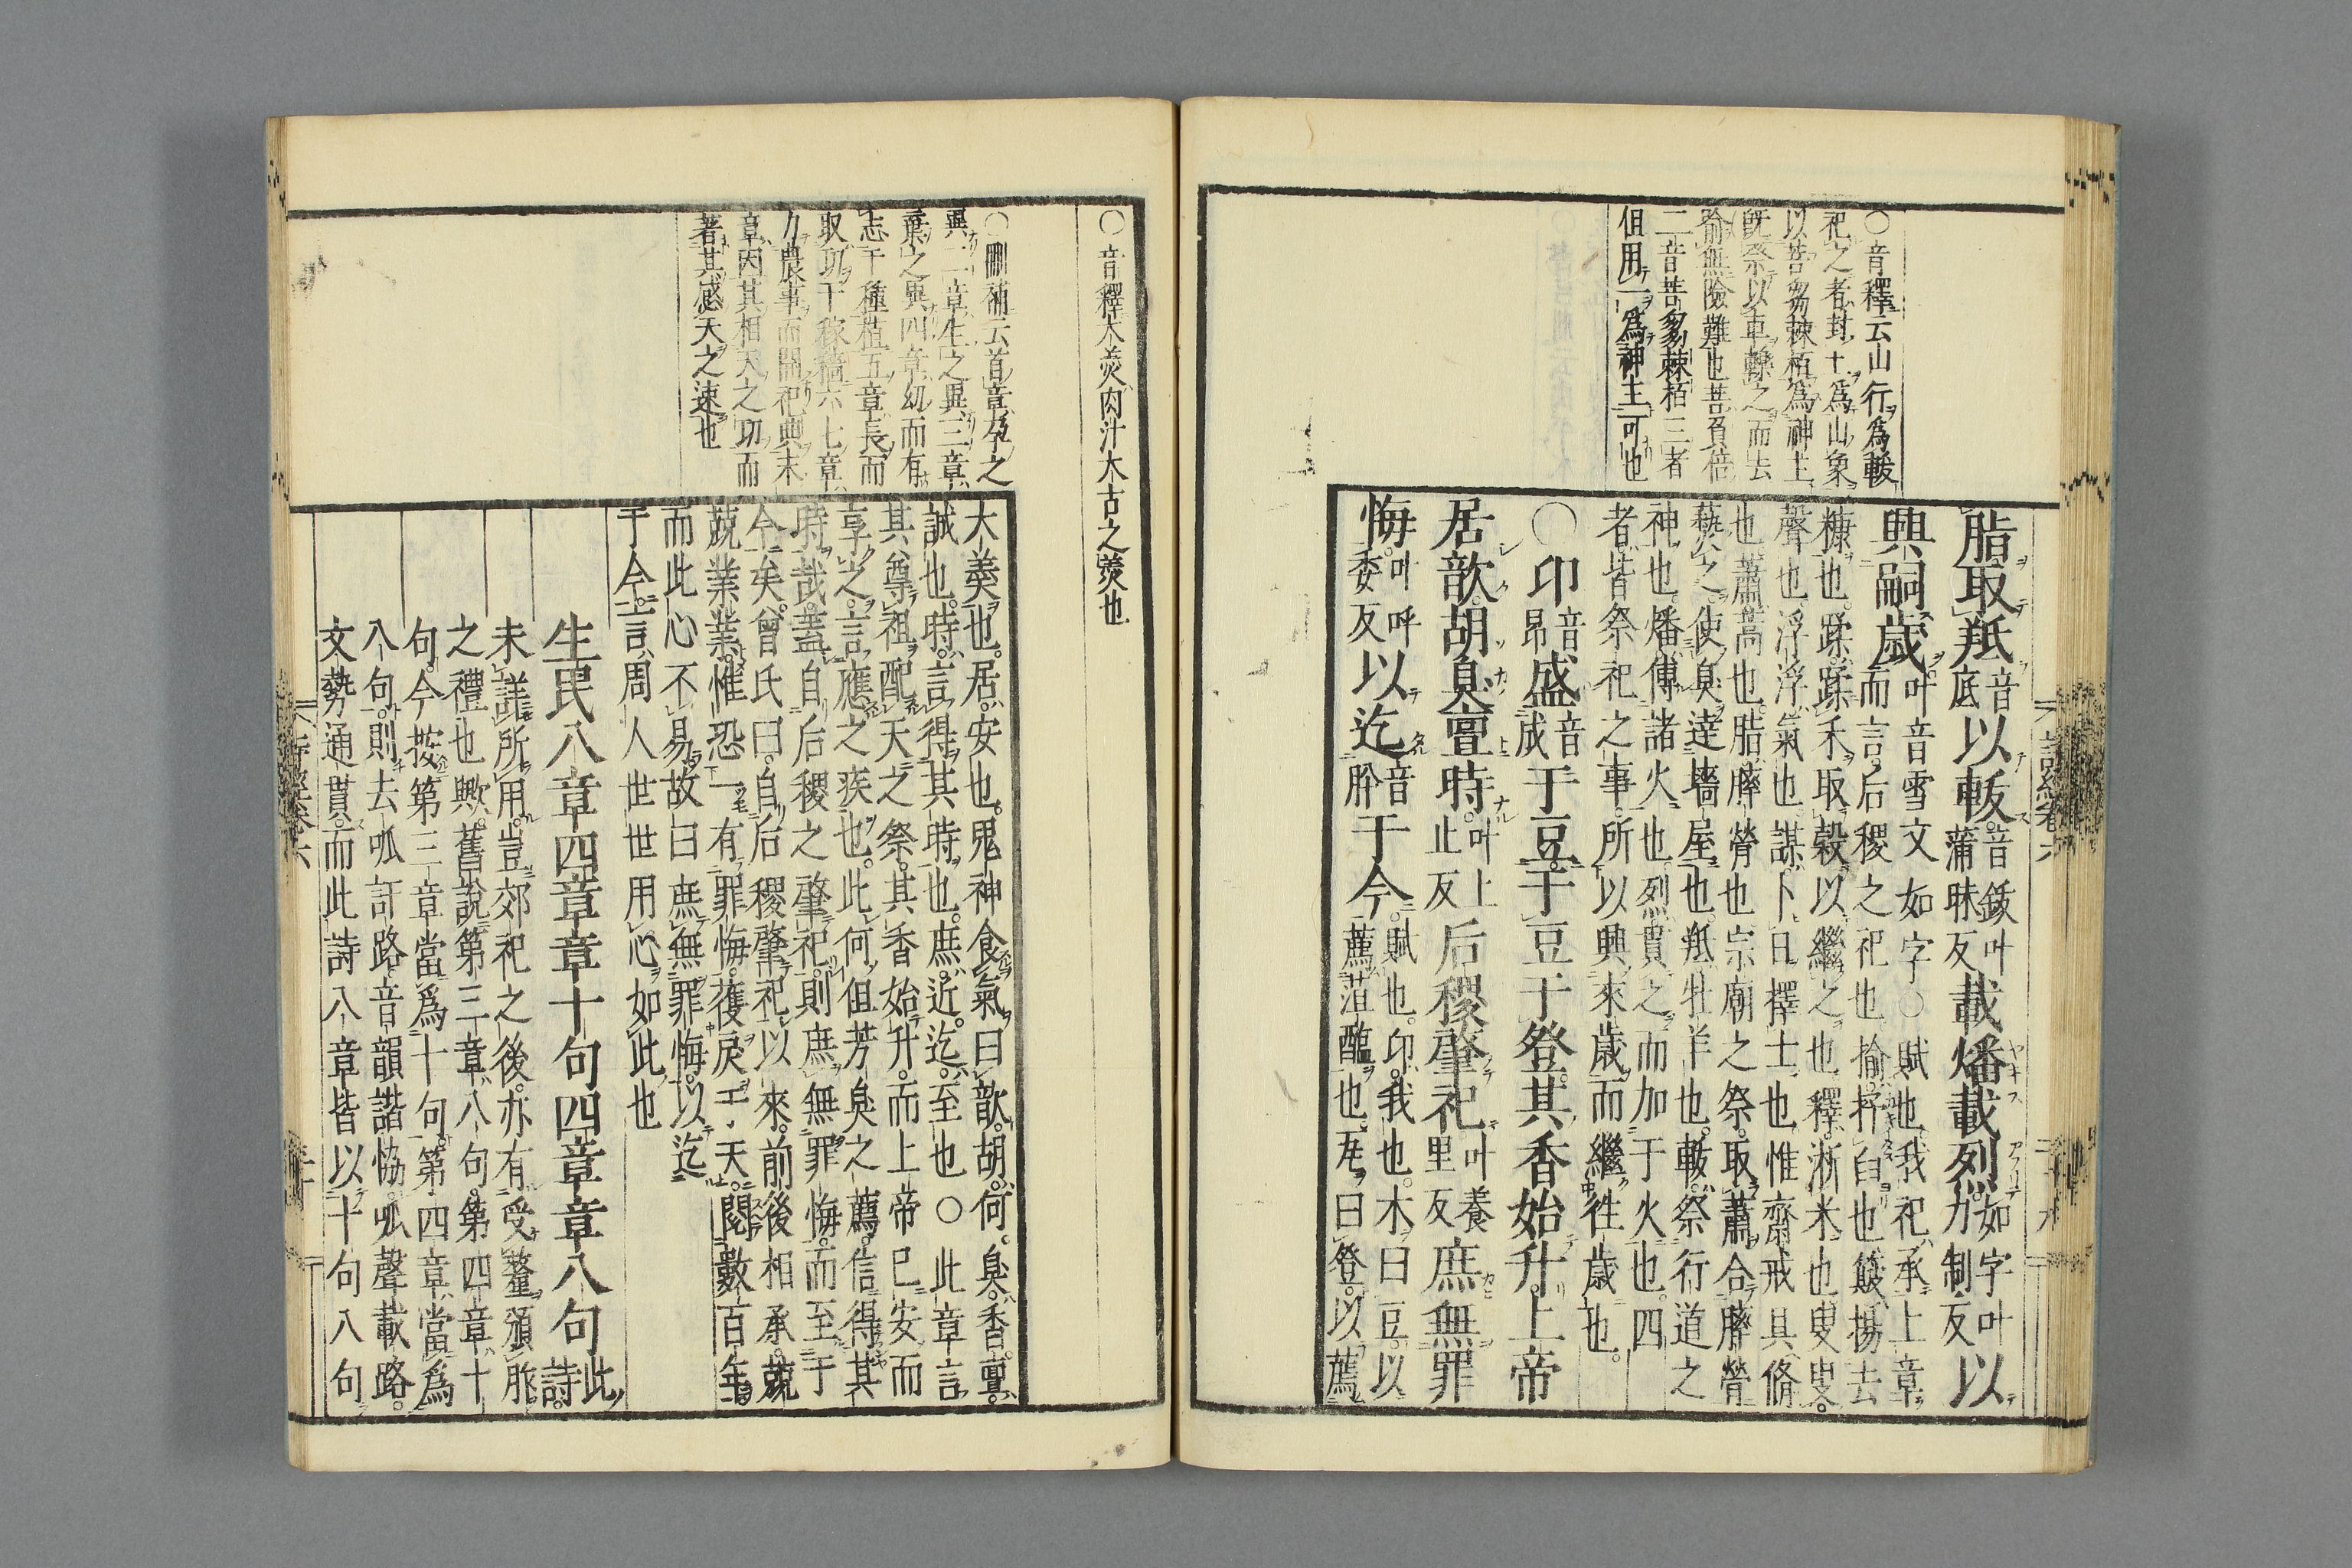 ○音釋云山行爲軷
祀之者封土爲山象
以菩芻棘栢爲神主
旣祭以車轢之而去
喻無險難也菩音倍
二音菩芻棘栢三者
但用一爲神主可也
脂取羝音底以軷音鈸叶蒲昧反載燔載烈如字叶力制反以
興嗣歲叶音雪文如字○賦也我祀承上章
而言后稷之祀也揄抒臼也簸揚去
糠也蹂蹂禾取穀以繼之也釋淅米也叟叟
聲也浮浮氣也謀卜日擇士也惟齋戒具脩
也蕭蒿也脂膟膋也宗廟之祭取蕭合膟膋
爇之使臭達墻屋也羝牡羊也軷祭行道之
神也燔傅諸火也烈貫之而加于火也四
者皆祭祀之事所以興來歲而繼往歲也
○卬音昂盛音成于豆于豆于登其香始升上帝
居歆胡臭亶時叶上止反后稷肇祀叶養里反庶無罪
悔叶呼委反以迄音肸于今賦也卬我也木曰豆以
薦菹醢也瓦曰登以薦
○音釋木羮肉汁大古之羮也
○刪補云首章孕之
異二章生之異三章
棄之異四章幼而有
志于種植五章長而
取功于稼穡六七章
力農事而開祀典末
章因其相天之功而
著其感天之速也
大羮也居安也鬼神食氣曰歆胡何臭香亶
誠也時言得其時也庶近迄至也○此章言
其尊祖配天之祭其香始升而上帝已安而
享之言應之疾也此何但芳臭之薦信得其
時哉蓋自后稷之肇祀則庶無罪悔而至于
今矣曾氏曰自后稷肇祀以來前後相承兢
兢業業惟恐一有罪悔獲戾于天閱數百年
而此心不易故曰庶無罪悔以迄
于今言周人世世用心如此也
生民八章四章章十句四章章八句此詩
未詳所用豈郊祀之後亦有受釐頒胙
之禮也歟舊說第三章八句第四章十
句今按第三章當爲十句第四章當爲
八句則去呱訏路音韻諧協呱聲載路
文勢通貫而此詩八章皆以十句八句